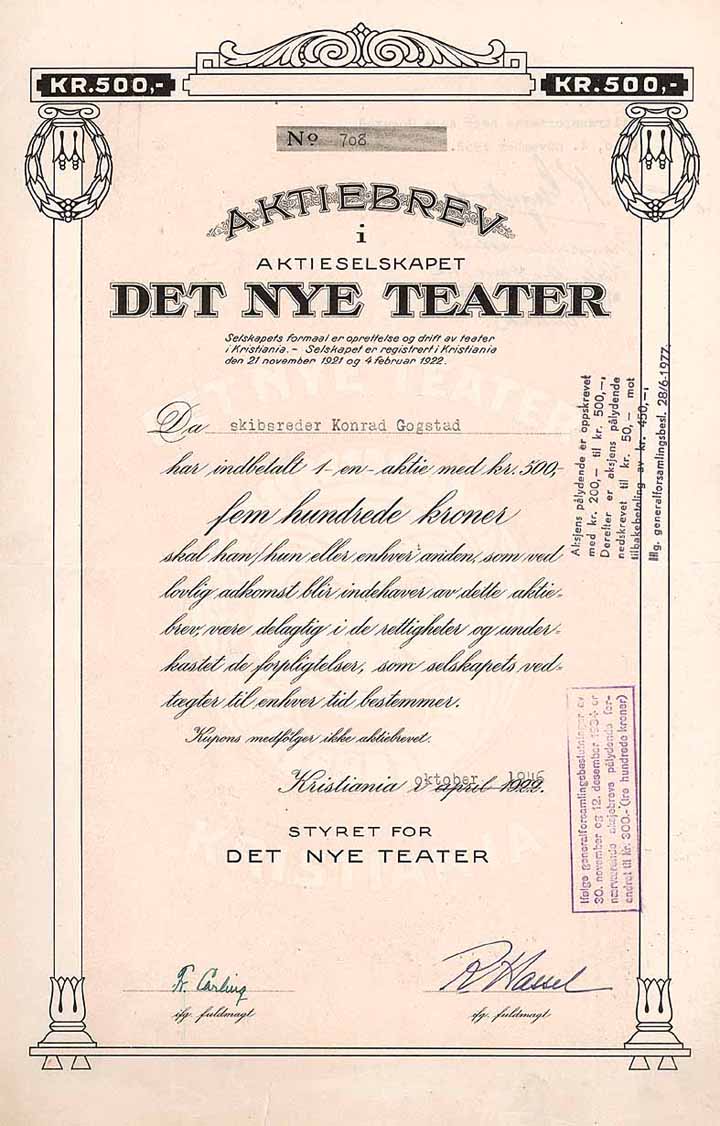 KR.500,- KR.500,-
No 708
AKTIEBREV
i
AKTIESELSKAPET
DET NYE TEATER
Selskapets formaal er oprettelse og drift av teater
i Kristiania. – Selskapet er registrert i Kristiania
den 21 november 1921 og 4 februar 1922.
Da skibsreder Konrad Gogstad
har indbetalt 1-en-aktie med kr. 500,-
fem hundrede kroner
skal han/hun eller enhver anden, som ved
lovlig adkomst blir indehaver av dette aktie-
brev, være delagtig i de rettigheter og under-
kastet de forpligtelser, som selskapets ved-
tægter til enhver tid bestemmer.
Kupons medfölger ikke aktiebrevet.
oktober 1946
Kristiania, april 1929.
STYRET FOR
DET NYE TEATER
Fr. Carling R Hassel
ifg. fuldmagt ifg. fuldmagt
Aksjens pålydende er oppskrevet
med kr. 200,– til kr. 500,–,
Derefter er aksjens pålydende
nedskrevet til kr. 50,– mot
tilbakebetaling av kr. 450,–,
Iflg. generalforsamlingsbesl. 28/6-1977.
Ifølge generalforsamlingsbeslutninger av
30. november og 12. desember 1934 er
nærværende aksjebrevs pålydende for-
andret til kr. 300.- (tre hundrede kroner)